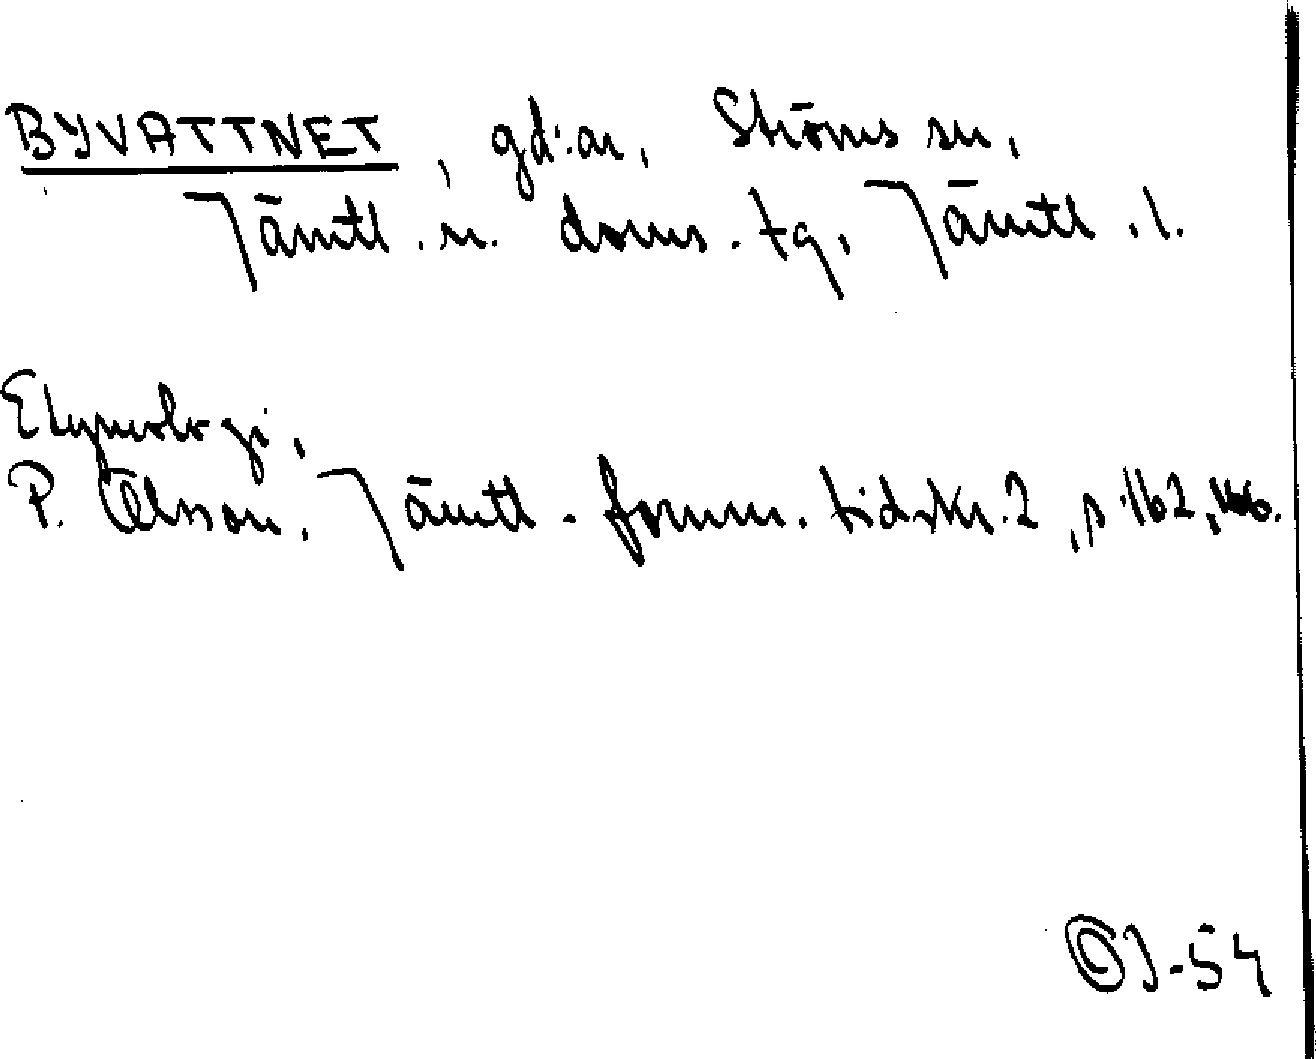 BYVATTNET, gd:ar, Ströms sn,
Jämtl. n. doms. tg, Jämtl. l.
Etymologi.
P. Olsson, Jämtl. fornm. tidskr. 2, s. 162, 166.
-54